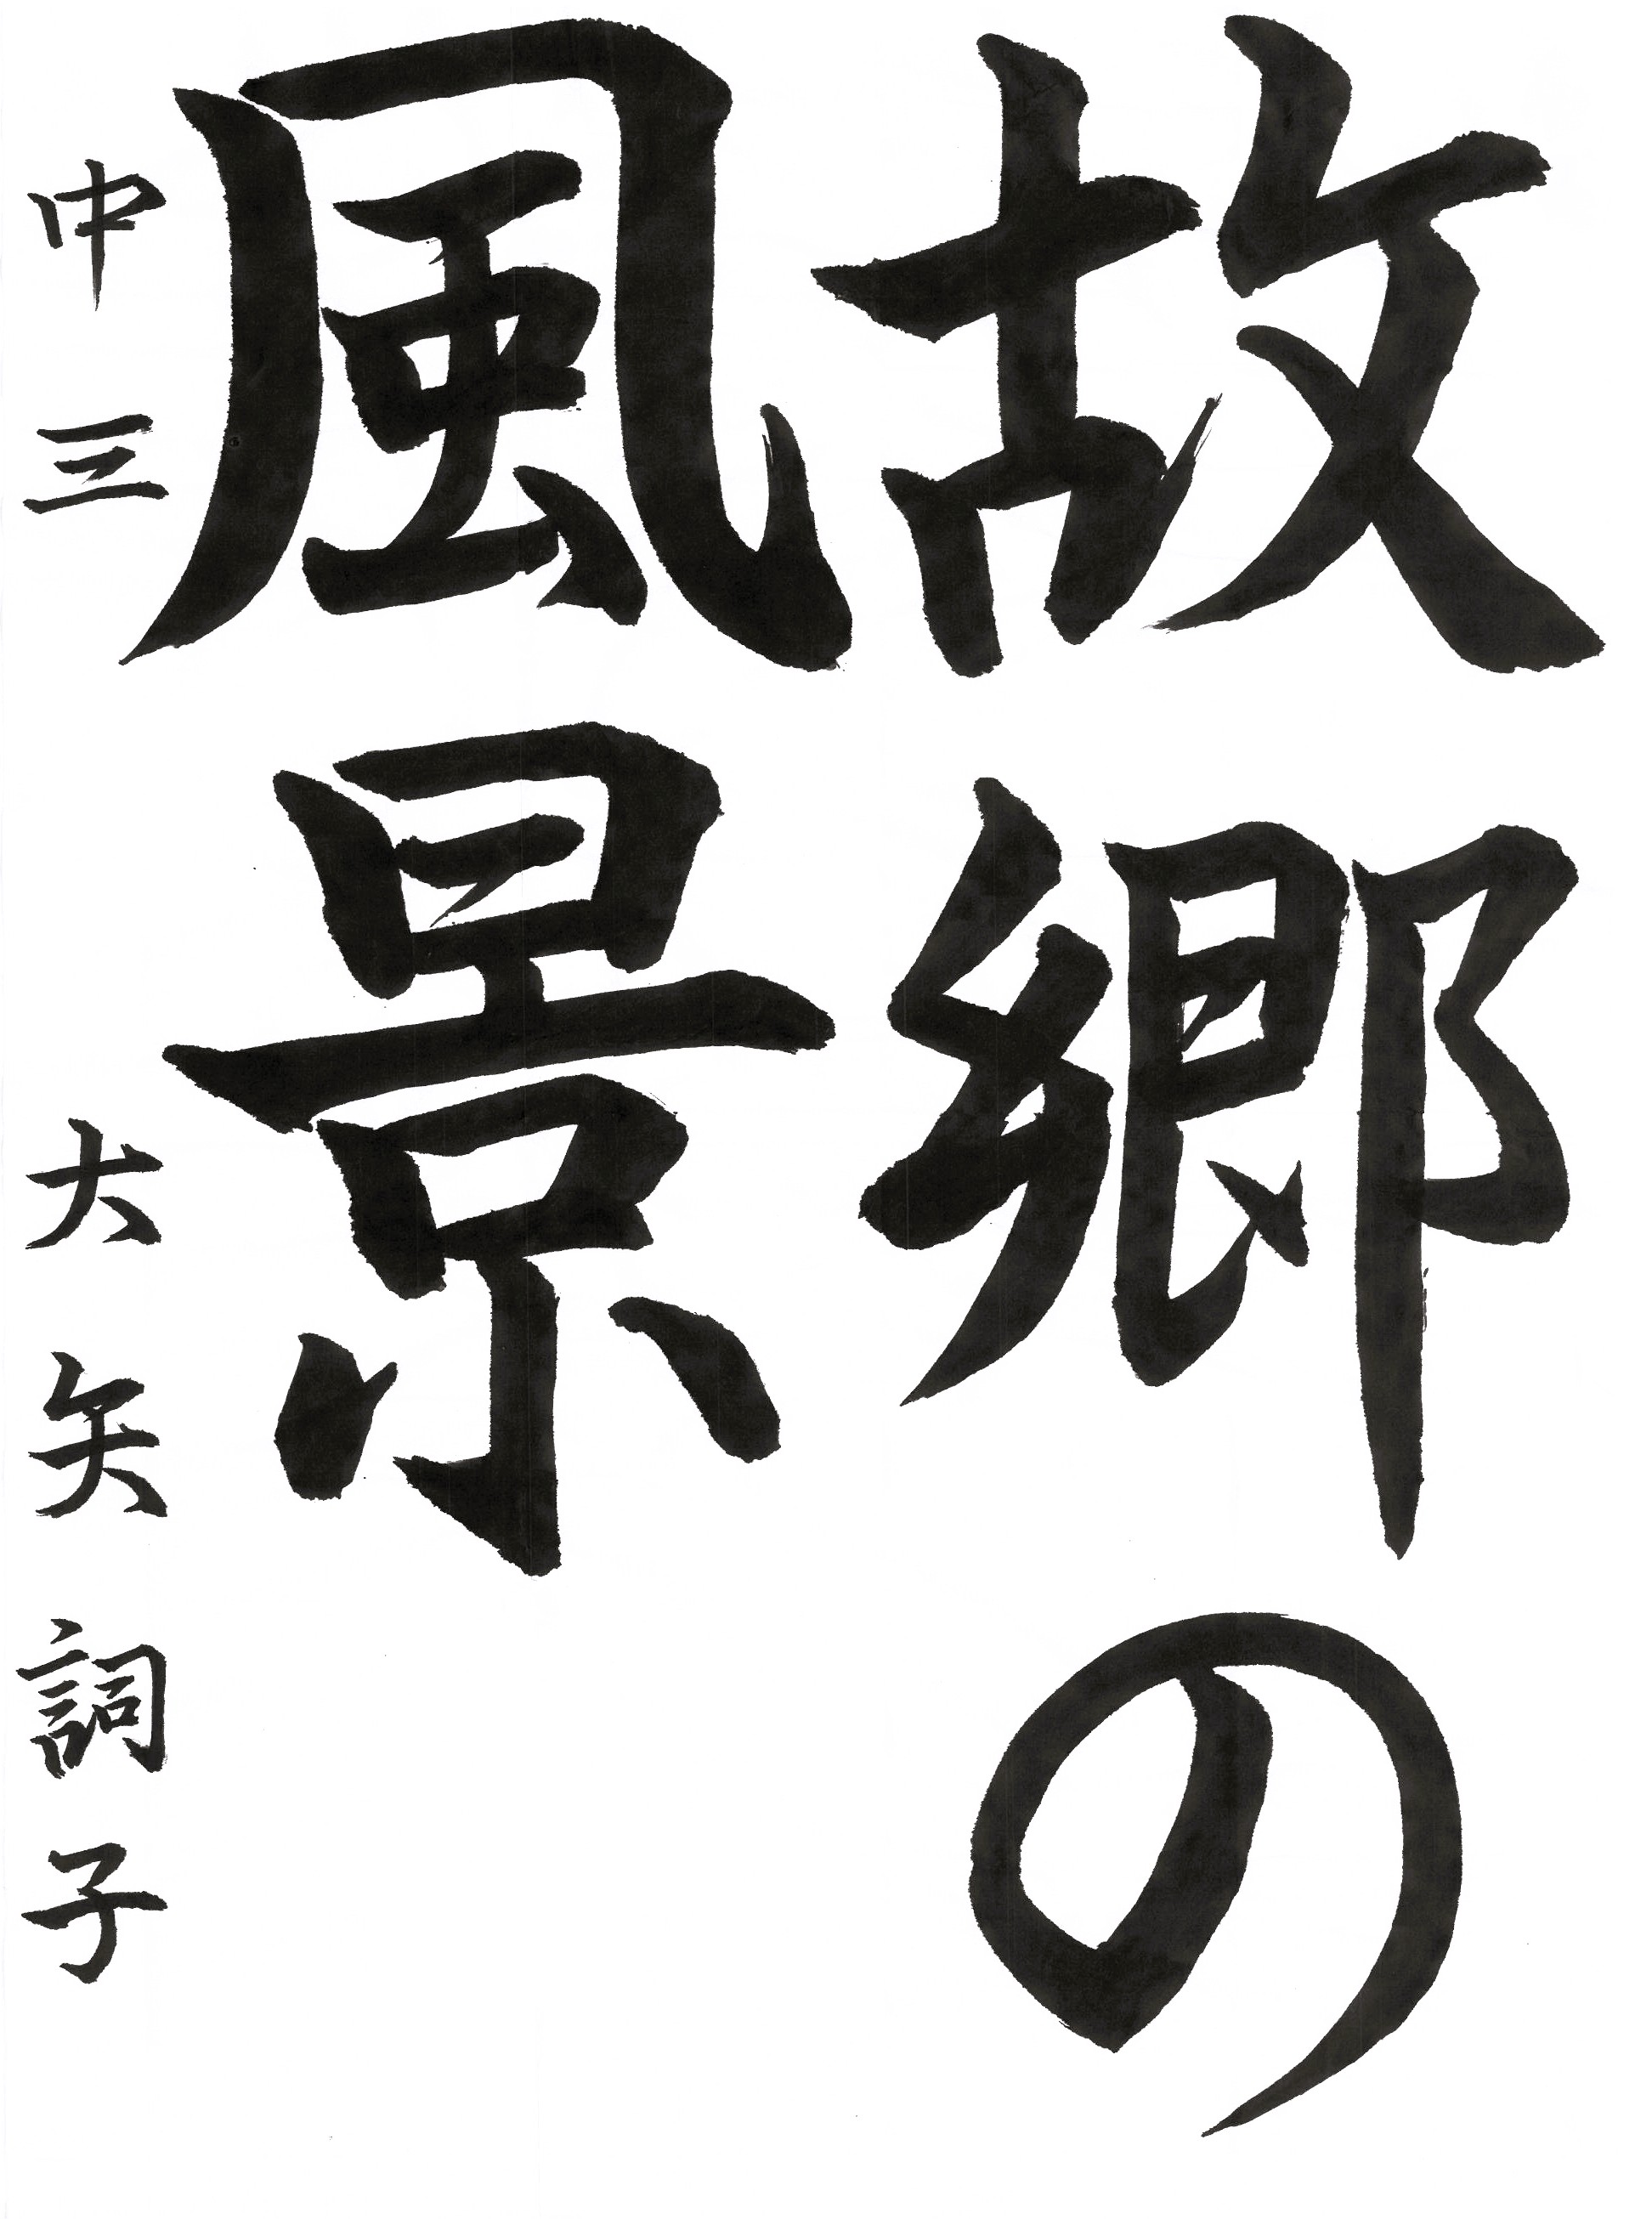 故郷の
風景
中三 大矢詞子